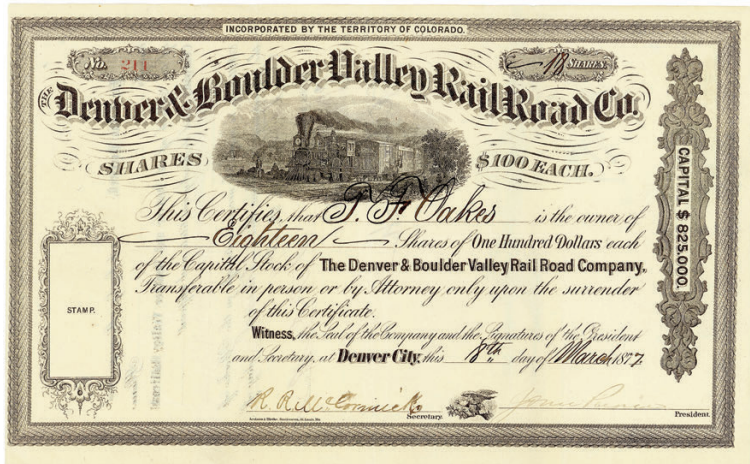 INCORPORATED BY THE TERRITORY OF COLORADO.
No. 211
18 SHARES
THE
Denver & Boulder Valley Rail Road Co.
SHARES $100 EACH.
This Certifies, that T. F. Oakes is the owner of
Eighteen Shares of One Hundred Dollars each
of the Capital Stock of The Denver & Boulder Valley Rail Road Company.
Transferable in person or by Attorney only upon the surrender
of this Certificate.
Witness, the Seal of the Company and the Signatures of the President
and Secretary, at Denver City, this 8th day of March 1877
STAMP.
CAPITAL $825,000.
R. R. McCormick.
Secretary.
President.